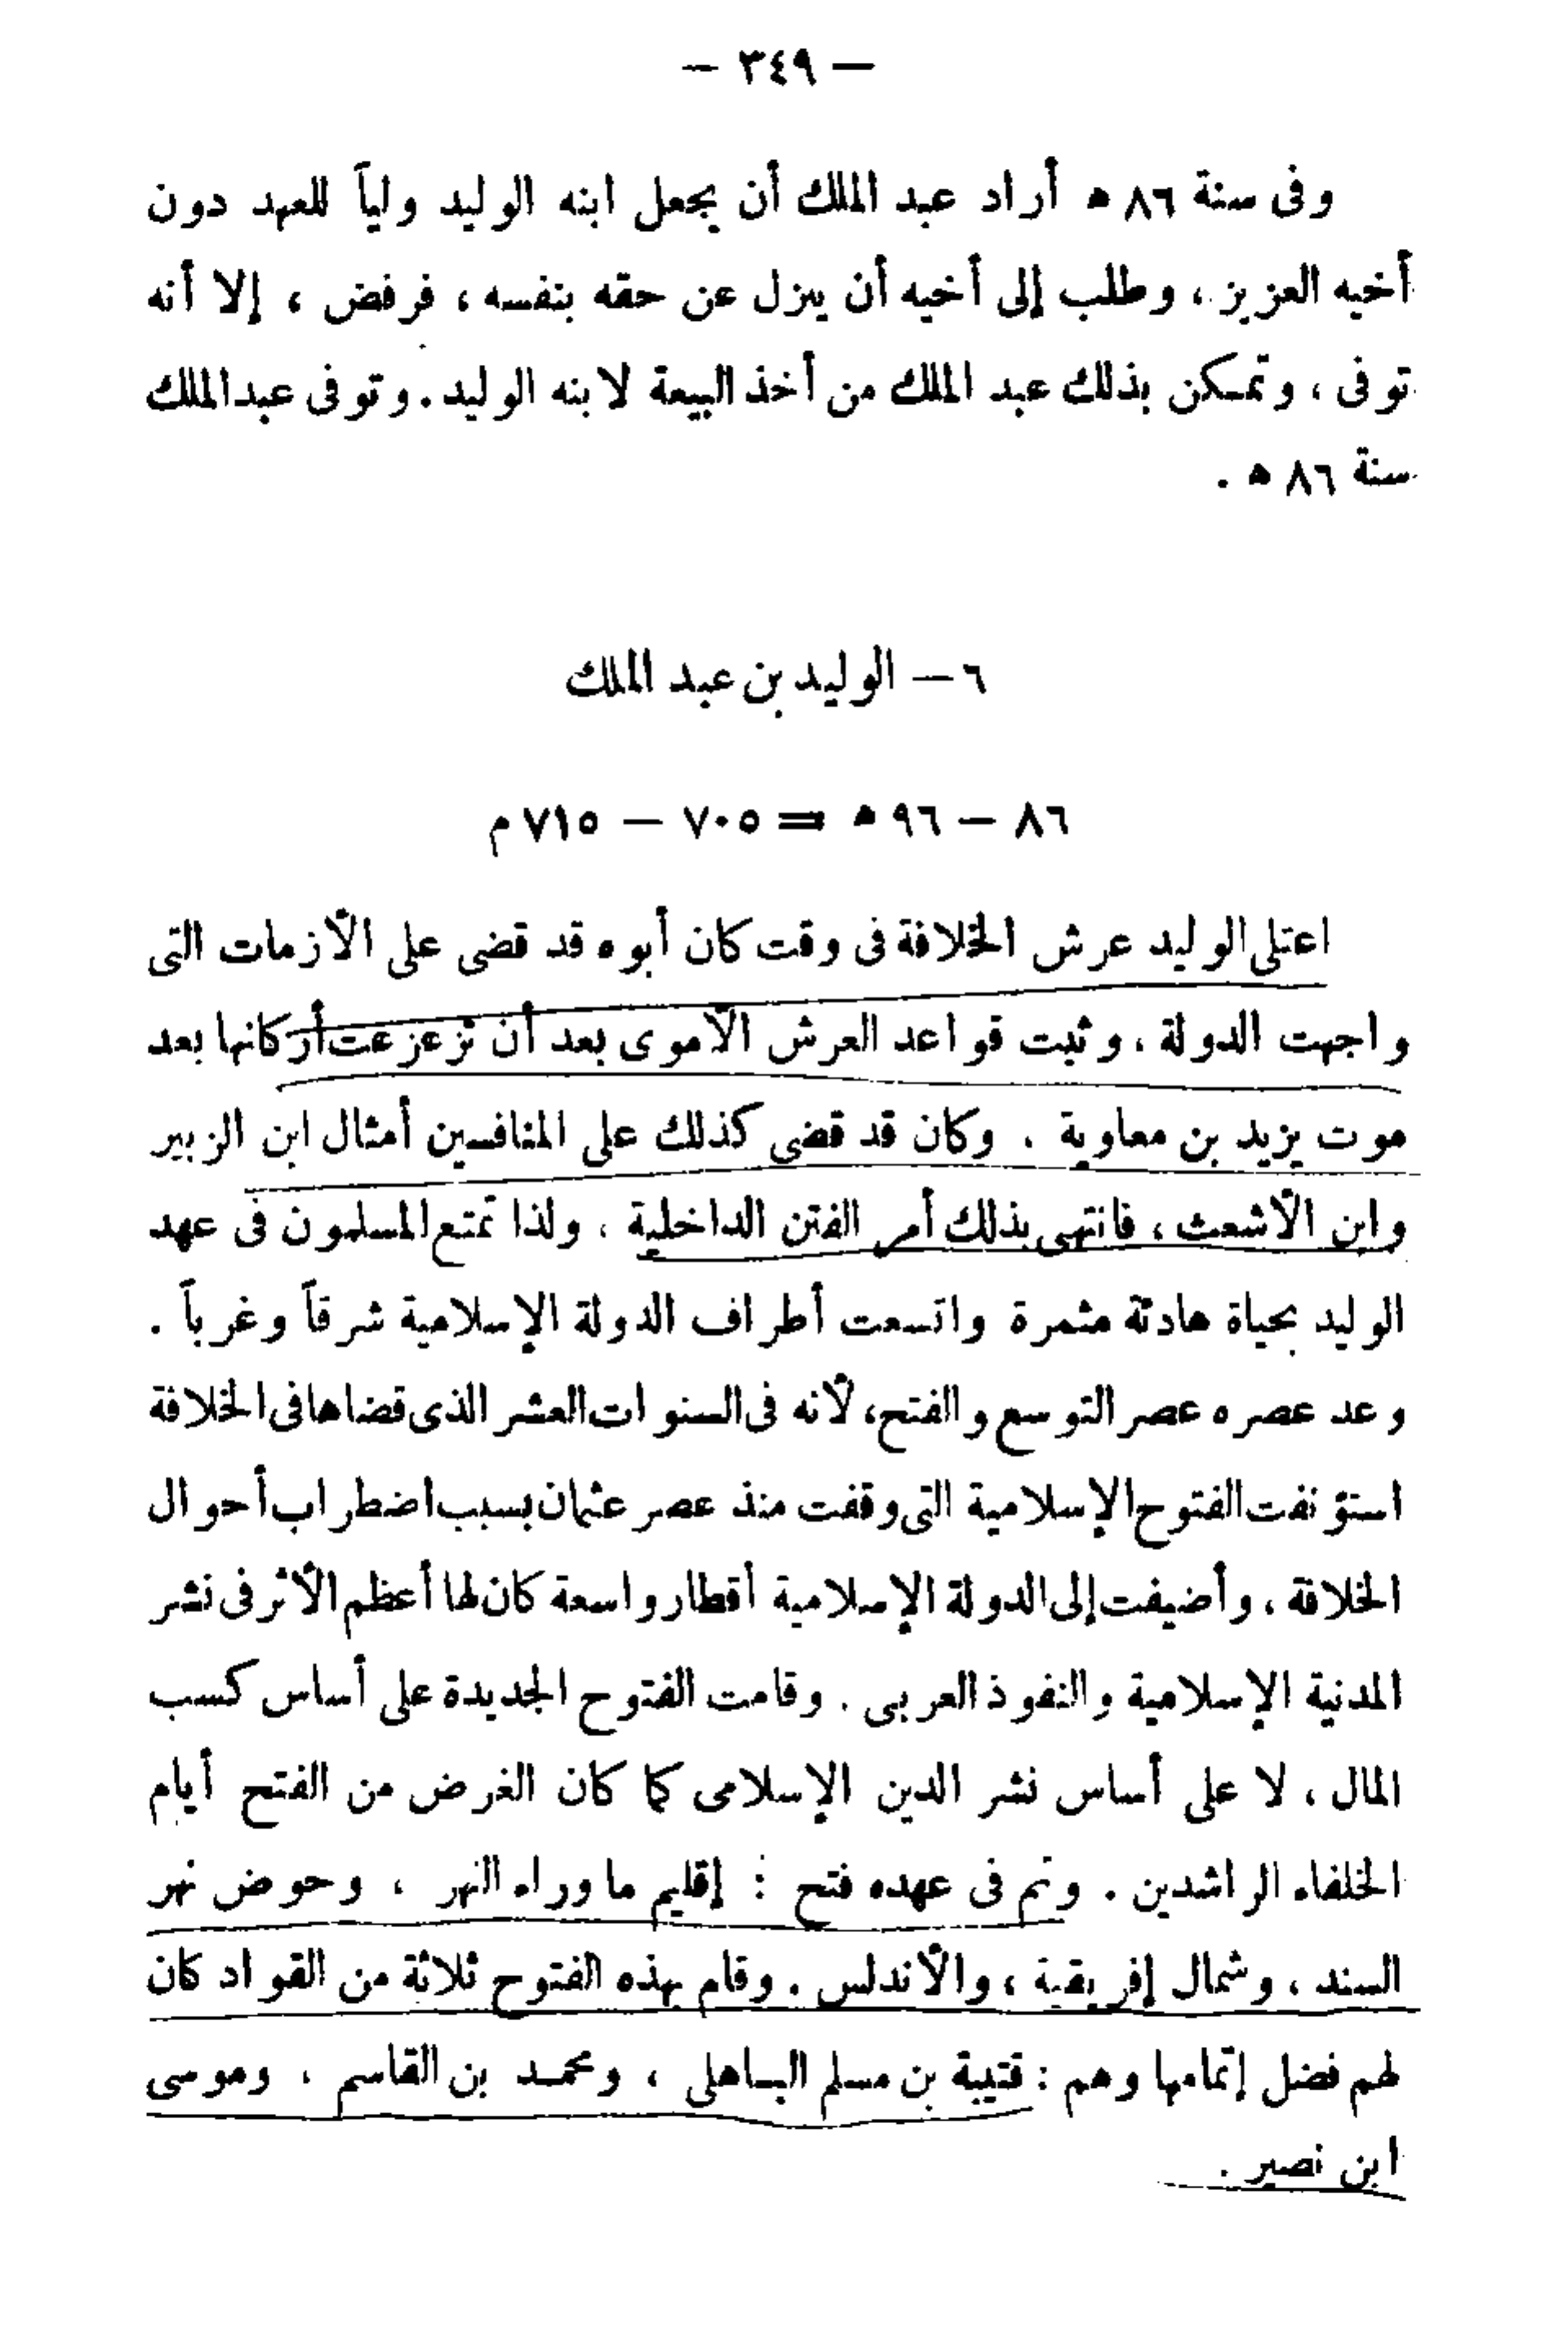 — ٣٤٩ —
وفى سنة ٨٦ ه أراد عبد الملك أن يجعل ابنه الوليد ولياً للعهد دون
أخيه العزيز ، وطلب إلى أخيه أن ينزل عن حقه بنفسه ، فرفض ، إلا أنه
توفى ، وتمكن بذلك عبد الملك من أخذ البيعة لابنه الوليد . وتوفى عبد الملك
سنة ٨٦ ه .
٦ — الوليد بن عبد الملك
٨٦ — ٩٦ ه = ٧٠٥ — ٧١٥ م
اعتلى الوليد عرش الخلافة فى وقت كان أبوه قد قضى على الأزمات التى
واجهت الدولة ، وثبت قواعد العرش الأموى بعد أن تزعزعت أركانها بعد
موت يزيد بن معاوية . وكان قد قضى كذلك على المنافسين أمثال ابن الزبير
وابن الأشعث ، فانتهى بذلك أمر الفتن الداخلية ، ولذا تمتع المسلمون فى عهد
الوليد بحياة هادئة مثمرة واتسعت أطراف الدولة الإسلامية شرقاً وغرباً .
وعد عصره عصر التوسع والفتح ، لأنه فى السنوات العشر الذى قضاها فى الخلافة
استؤنفت الفتوح الإسلامية التى وقفت منذ عصر عثمان بسبب اضطراب أحوال
الخلافة ، وأضيفت إلى الدولة الإسلامية أقطار واسعة كان لها أعظم الأثر فى نشر
المدنية الإسلامية والنفوذ العربى . وقامت الفتوح الجديدة على أساس كسب
المال ، لا على أساس نشر الدين الإسلامى كما كان الغرض من الفتح أيام
الخلفاء الراشدين . وتم فى عهده فتح : إقليم ما وراء النهر ، وحوض نهر
السند ، وشمال إفريقية ، والأندلس . وقام بهذه الفتوح ثلاثة من القواد كان
لهم فضل إتمامها وهم : قتيبة بن مسلم الباهلى ، ومحمد بن القاسم ، وموسى
ابن نصير .